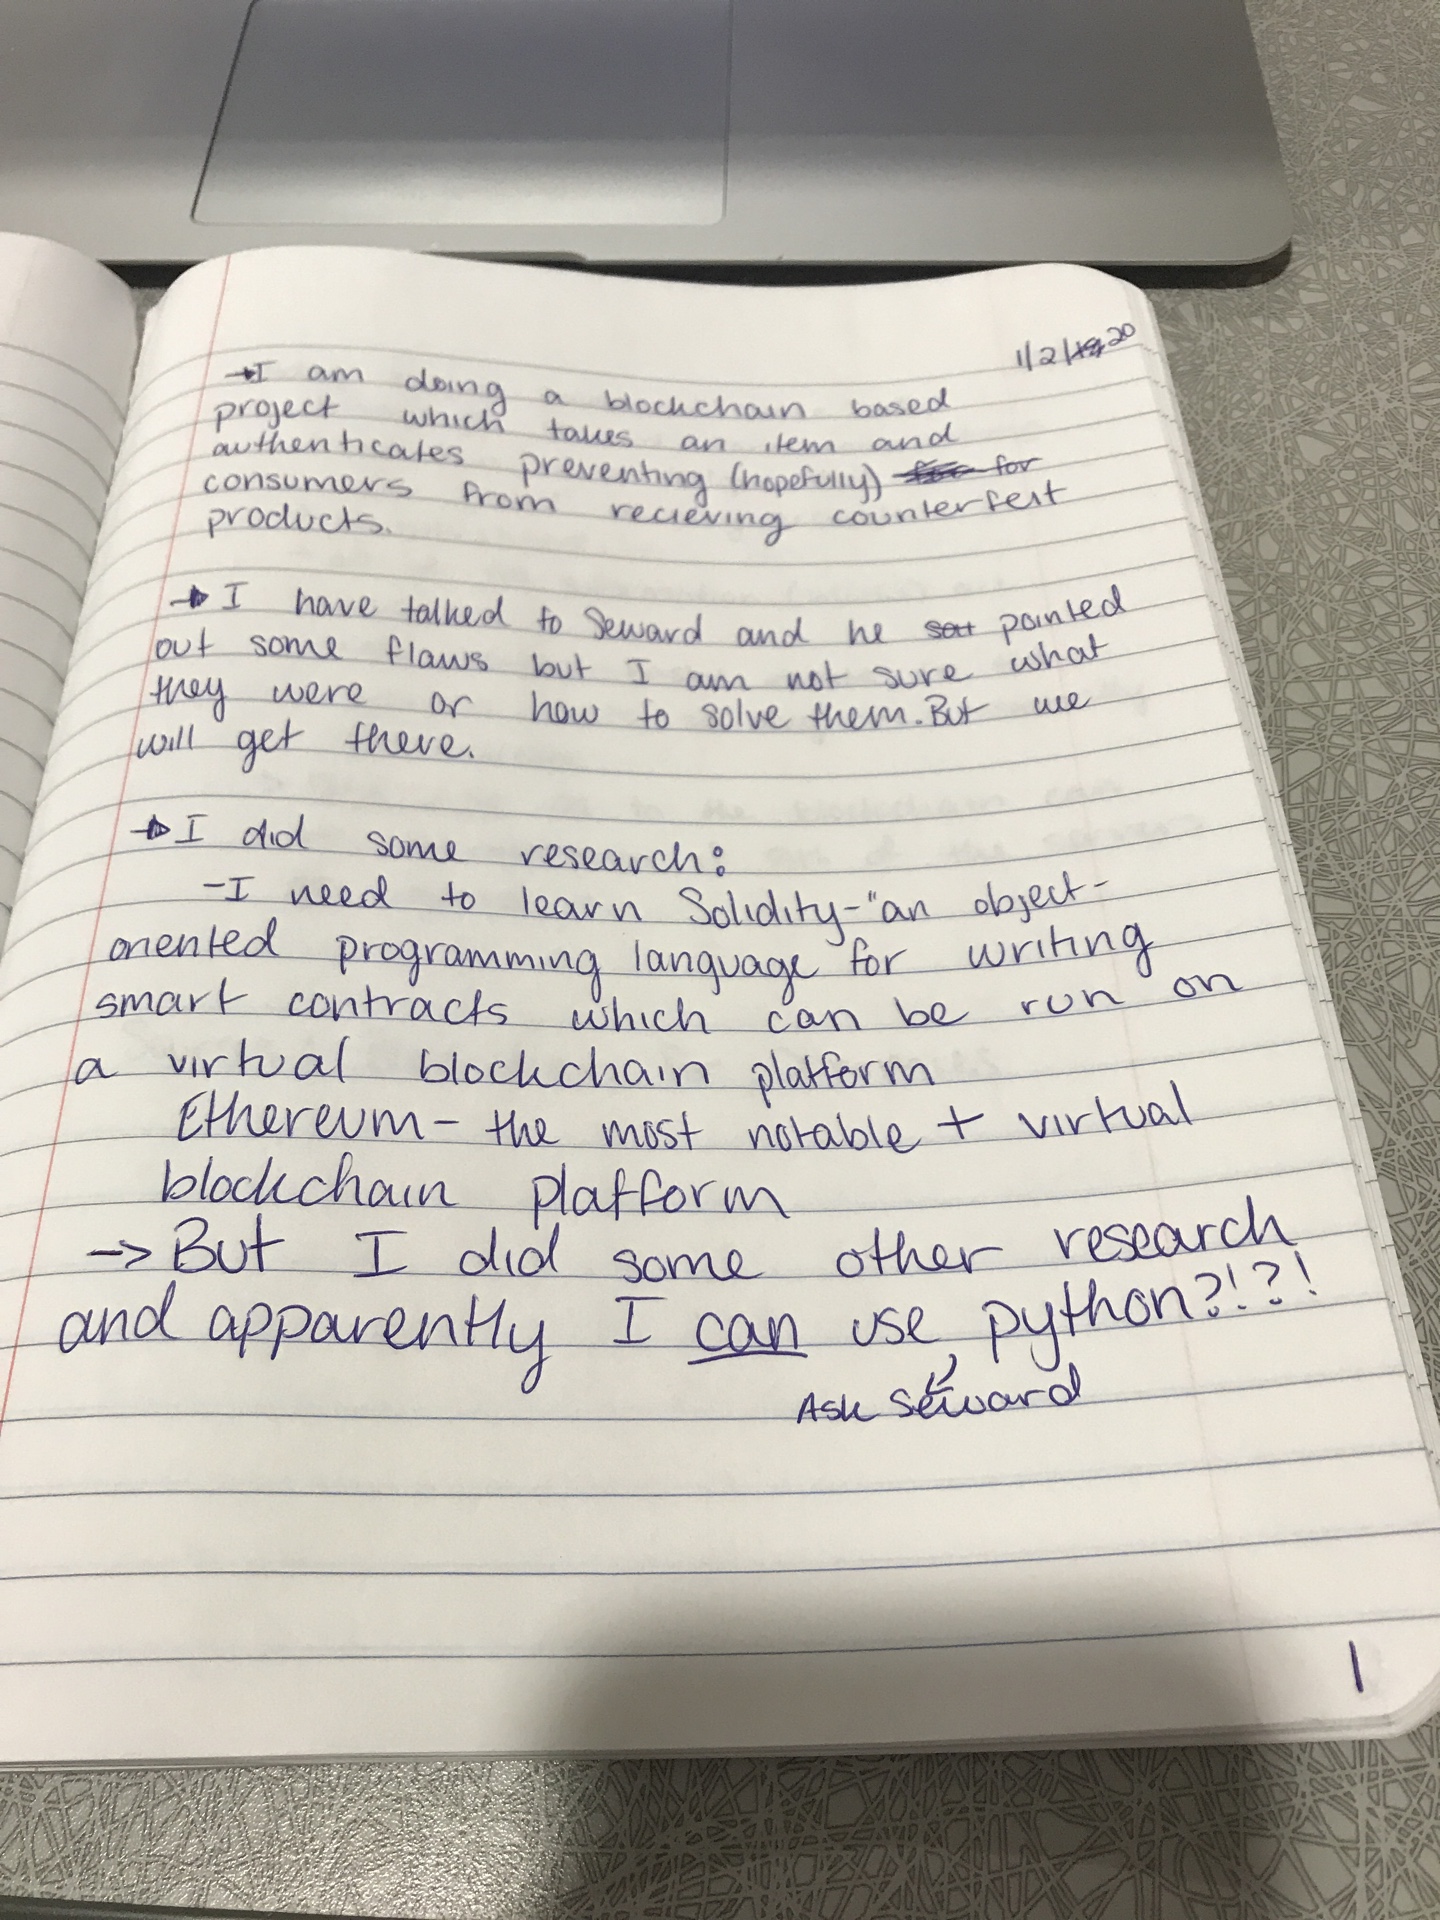 1/2/19 20
→I am doing a blockchain based
project which takes an item and
authenticates preventing (hopefully) for
consumers from recieving counterfeit
products.
→ I have talked to Seward and he sat pointed
out some flaws but I am not sure what
they were or how to solve them. But we
will get there.
→ I did some research:
-I need to learn Solidity-"an object-
oriented programming language for writing
smart contracts which can be run on
a virtual blockchain platform
Ethereum- the most notable + virtual
blockchain platform
-> But I did some other research
and apparently I can use python?!?!
Ask Seward
1